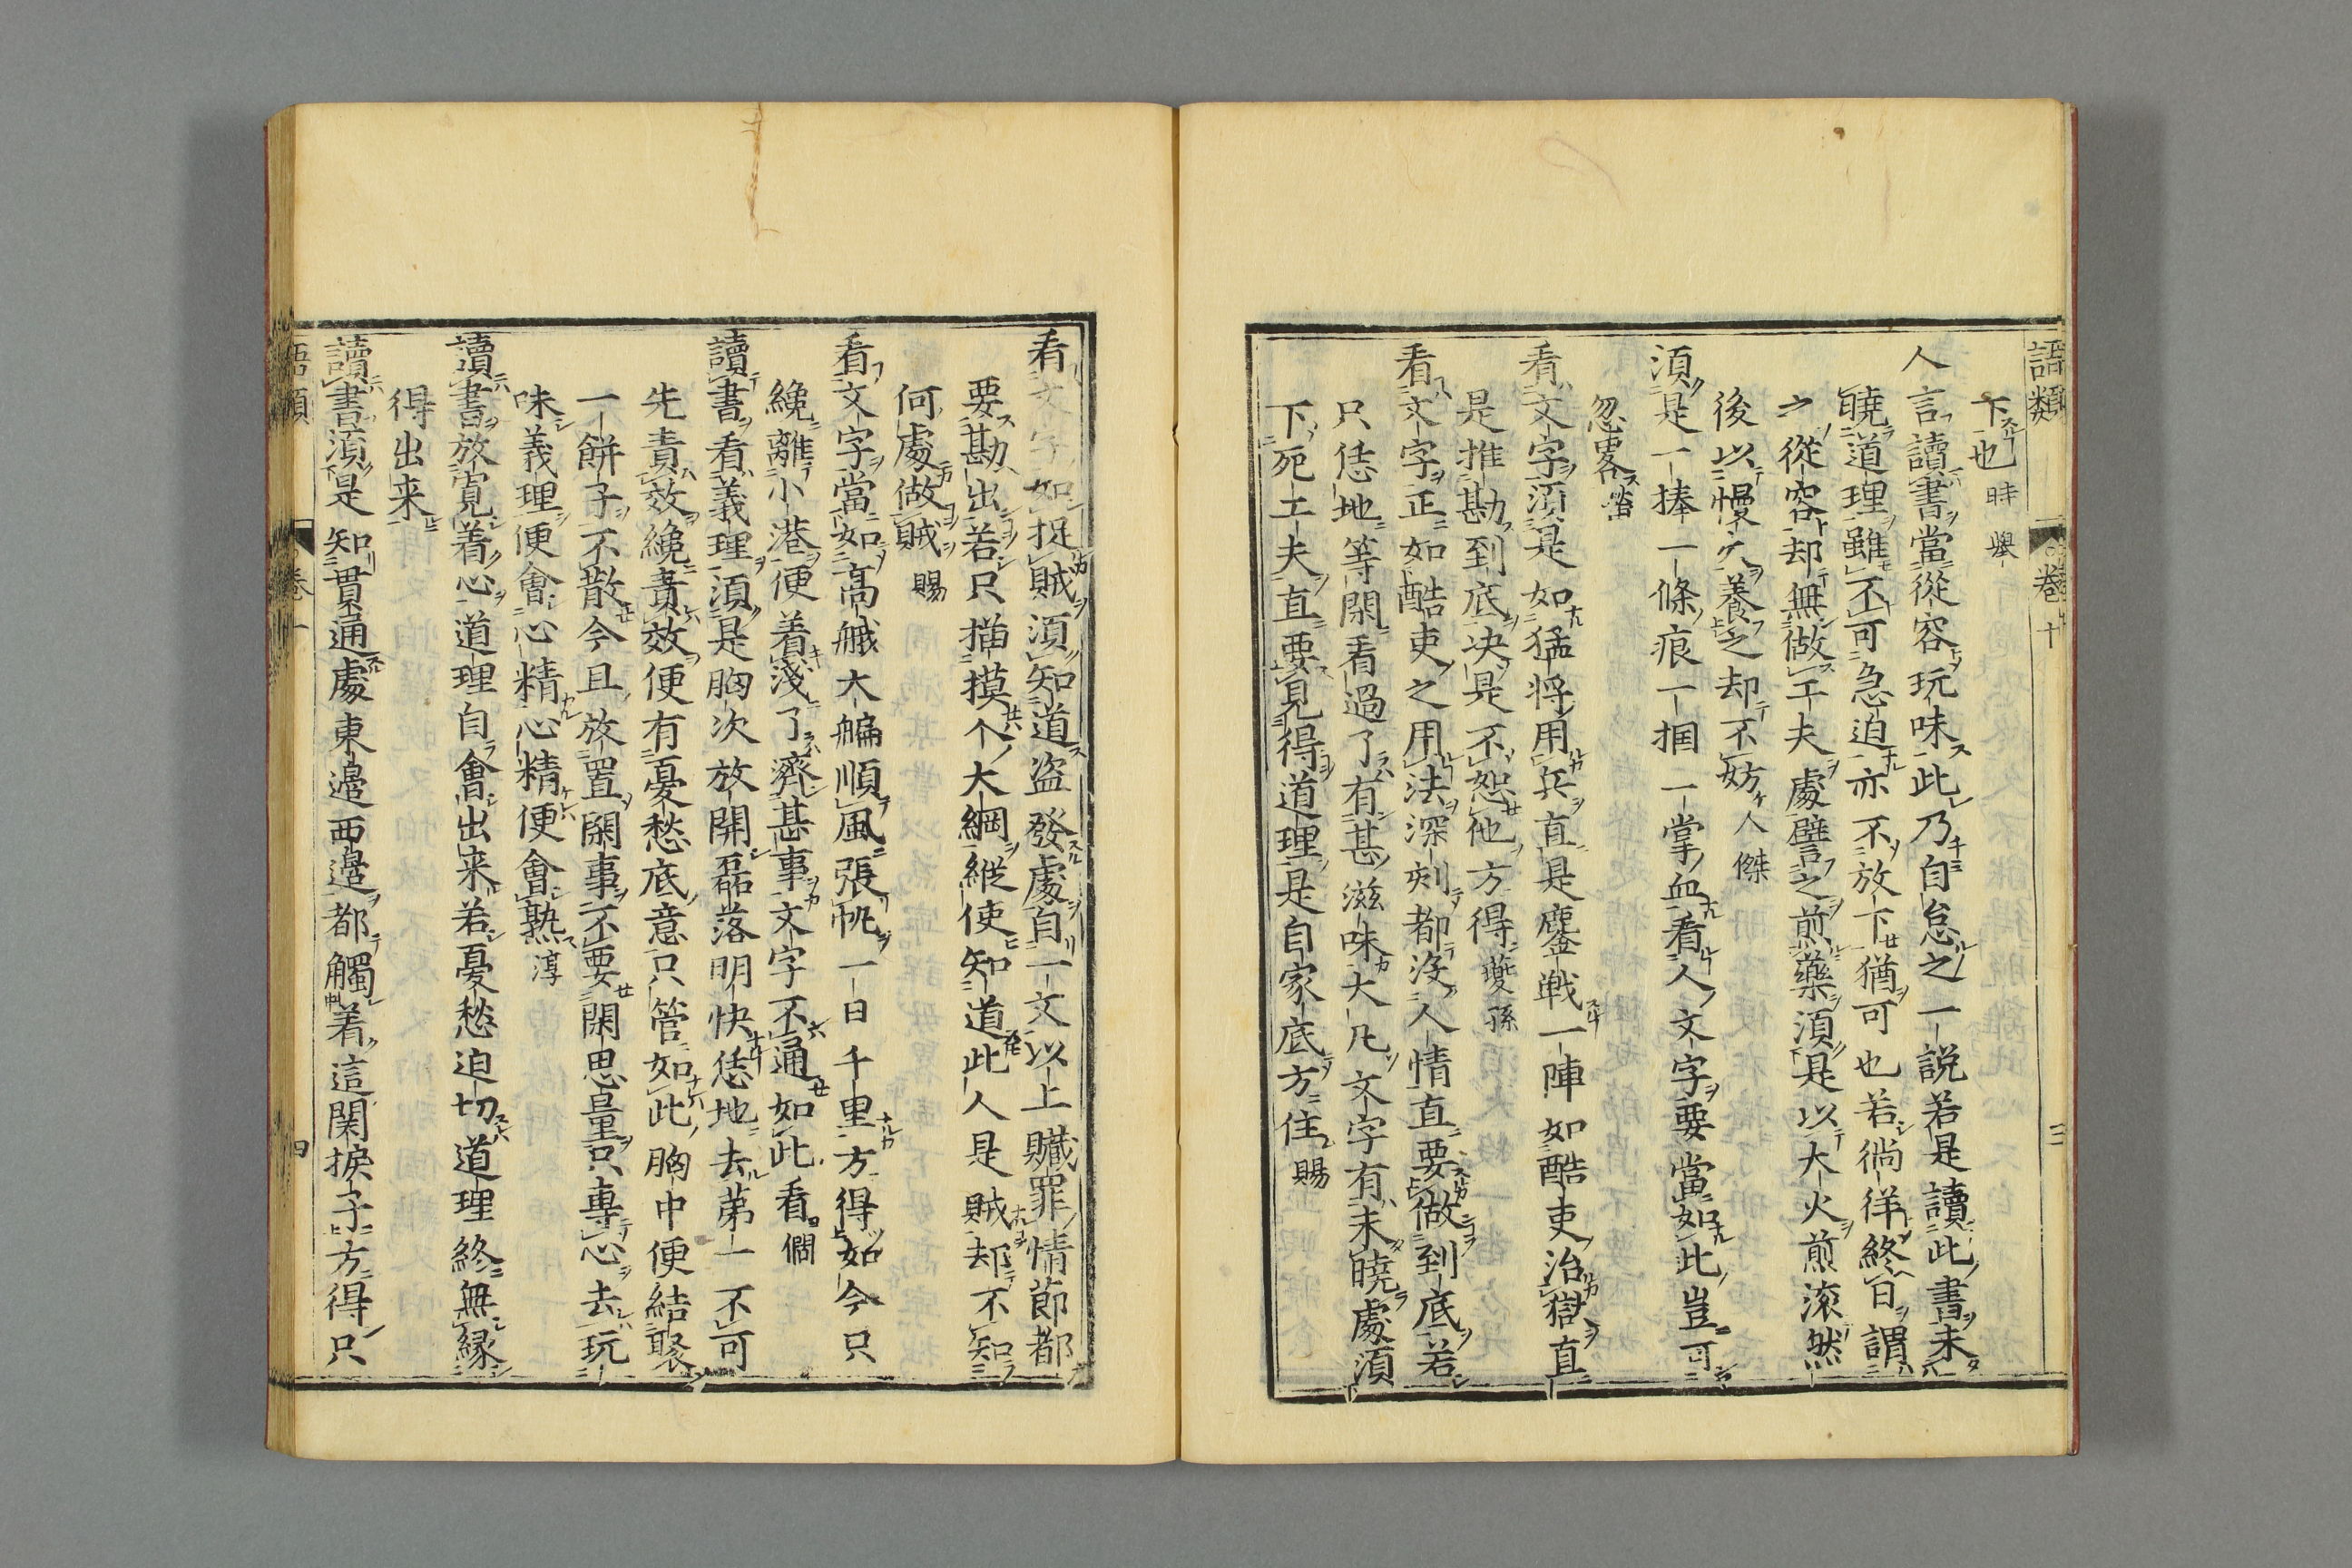 語類 卷十 三
下也時舉
人言讀書當從容玩味此乃自怠之一説若是讀此書未
曉道理雖不可急迫亦不放下猶可也若徜徉終日謂
之從容却無做工夫處譬之煎藥須是以大火煎滚然
後以慢火養之却不妨人傑
須是一捧一條痕一掴一掌血看人文字要當如此豈可
忽畧𥮾
看文字須是如猛将用兵直是鏖戦一陣如酷吏治獄直
是推勘到底决是不恕他方得夔孫
看文字正如酷吏之用法深刻都没人情直要做到底若
只恁地等閑看過了有甚滋味大凡文字有未曉處須
下死工夫直要見得道理是自家底方住賜
看文字如捉賊須知道盗發處自一文以上贓罪情節都
要勘出若只描摸个大綱縱使知道此人是賊却不知
何處做賊賜
看文字當如高艥大艑順風張帆一日千里方得如今只
纔離小港便着淺了濟甚事文字不通如此看僩
讀書看義理須是胸次放開磊落明快恁地去第一不可
先責效纔責效便有憂愁底意只管如此胸中便結聚
一餅子不散今且放置閑事不要閑思量只專心去玩
味義理便會心精心精便會熟淳
讀書放寛着心道理自會出来若憂愁迫切道理終無縁
得出来
讀書須是知貫通處東邉西邉都觸着這関捩子方得只
語類 卷十 四